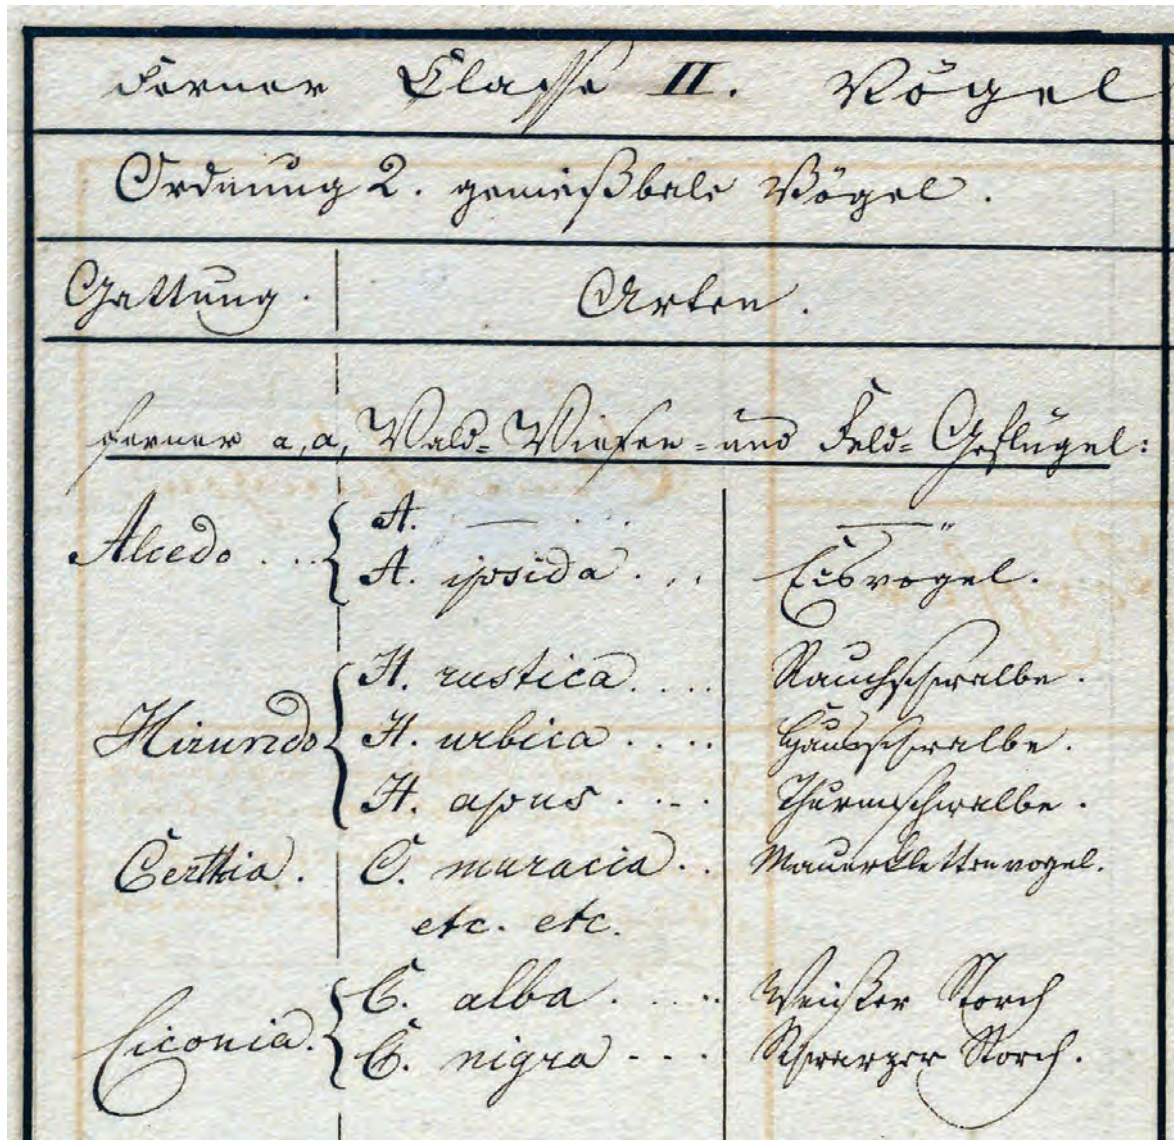 Ferner Classe II. Vögel
Ordnung 2. genießbare Vögel.
Gattung. Arten.
ferner a, a, Wald= Wiesen= und Feld= Geflügel:
Alcedo ... A. — . . — "
A. ipsida. .. Eisvogel.
Hirundo H. rustica. ... Rauchschwalbe.
H. urbica .... Hausschwalbe.
H. apus .... Thurmschwalbe.
Certhia. C. muracia .. Mauerklettenvogel.
etc. etc.
Ciconia. C. alba. .... Weißer Storch
C. nigra ... Schwarzer Storch.